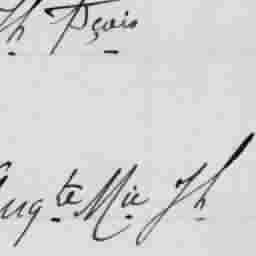 Jh Fçois
Augte Mie Jh